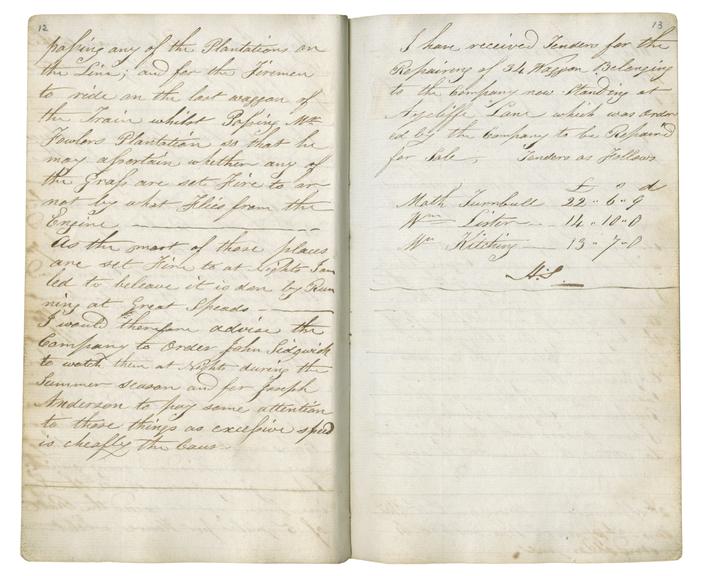 12
passing any of the Plantations on
the Line; and for the Firemen
to ride on the last waggon of
the Train whilst Passing Mr
Fowlers Plantation so that he
may assertain whether any of
the Grass are set Fire to or
not by what Flies from the
Engine
As the most of those places
are set Fire to at Nights I am
led to beleave it is don by Run
ning at Great Speads
I would therefore advise the
Company to Order John Sedgwick
to watch them at Nights during the
Summer season and for Joseph
Anderson to pay some attention
to those things as excessive speed
is cheafly the Caus
13
I have received Tenders for the
Repairing of 34 Waggon Belonging
to the Company now Standing at
Aycliffe Lane which was Order
ed by the Company to be Repaired
for Sale, Tenders as Follows
£ s d
Math Turnbull 22 " 6 " 9
Wm Lister 14 " 10 " 0
Wm Kitching 13 " 7 " 0